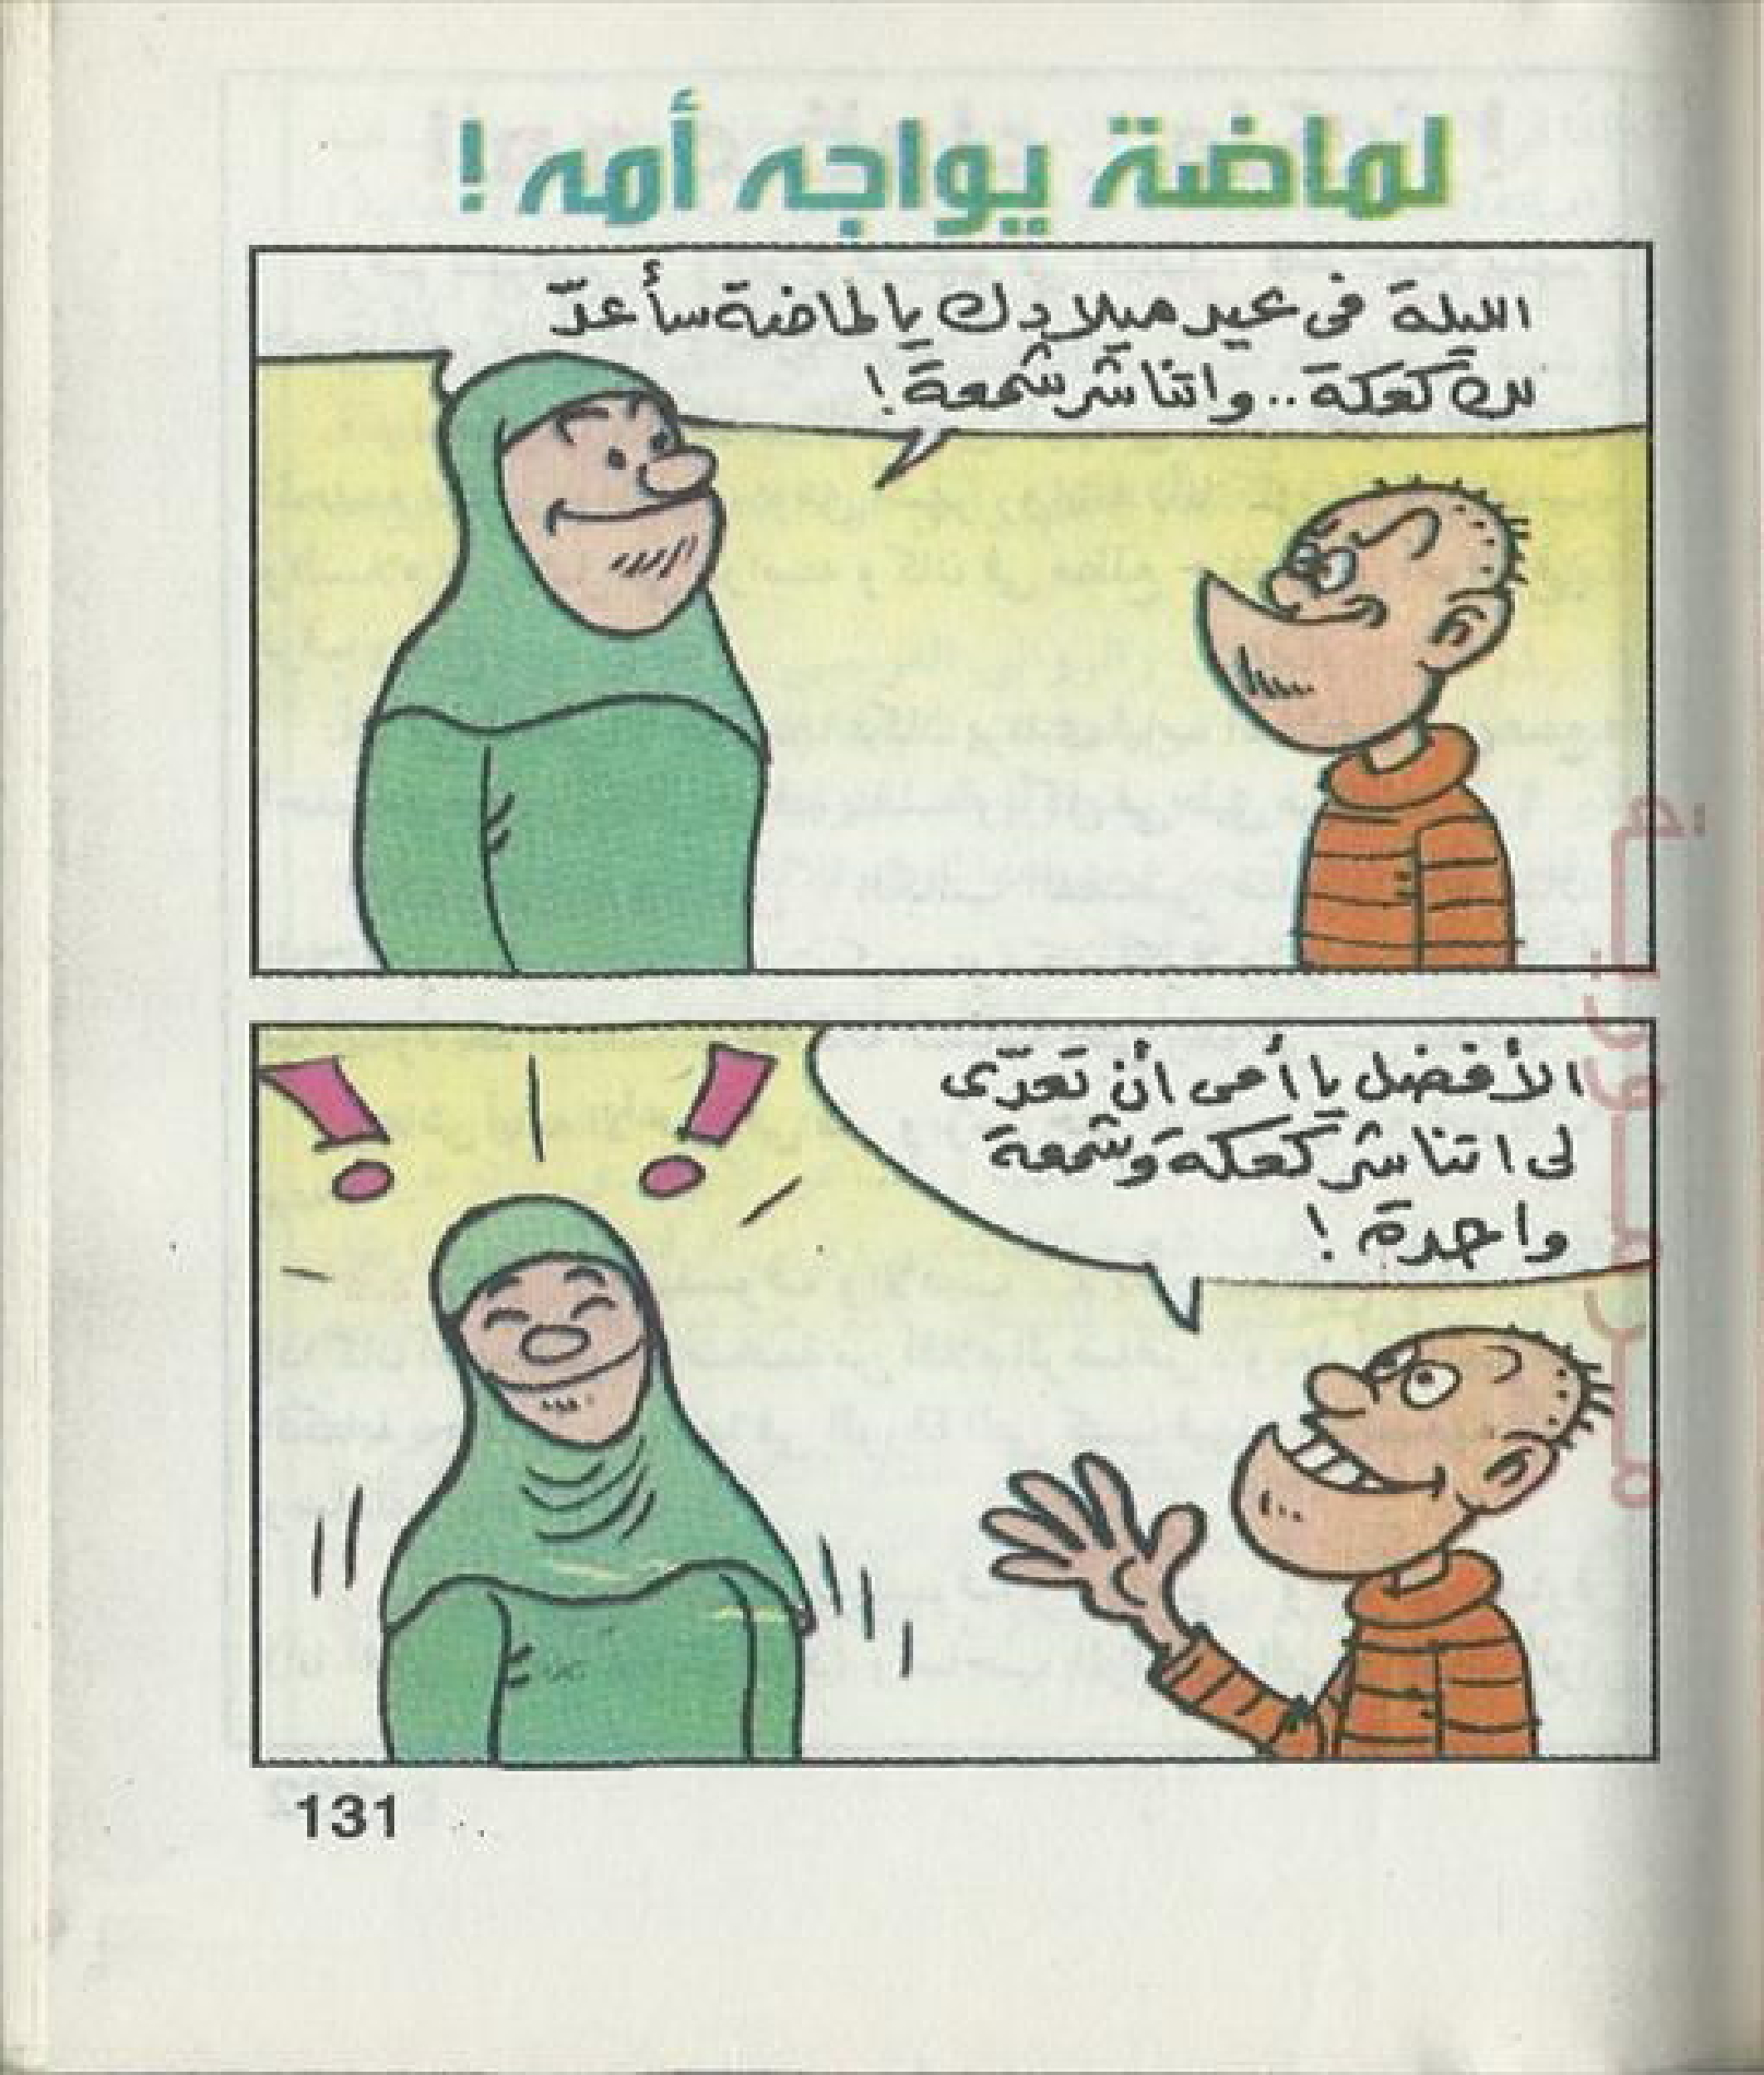 لماضة يواجه أمه !
الليلة فى عيد ميلادك يا لماضة سأعدّ
لك كعكة .. واتناشر شمعة !
الأفضل يا أمى أن تعدّى
لى اتناشر كعكة وشمعة
واحدة !
131